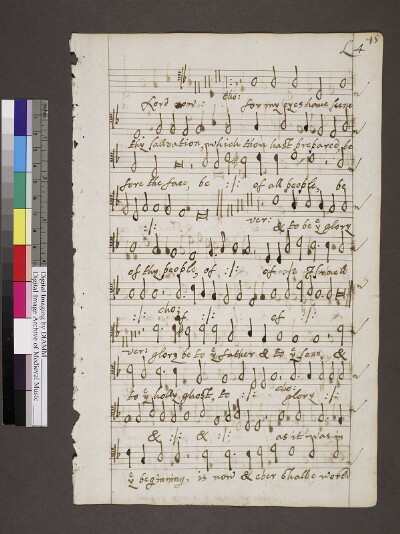 L 4 45
cho:
Lord now : for my eyes have seene
thy salvation, which thou hast prepared, be
fore the face, be :/: of all people, be
ver:
:/: & to be yͤ glory
of thy people, of :/: of :/: Israell
cho:
:/: of :/: of :/:
ver: glory be to yͤ father & to yͤ sone, &
cho:
to yͤ holy ghost, to :/: glory :/:
& :/: & :/: as it was in
yͤ beginning, is now & ever shalbe world
Digital Imaging by DIAMM
Digital Image Archive of Medieval Music